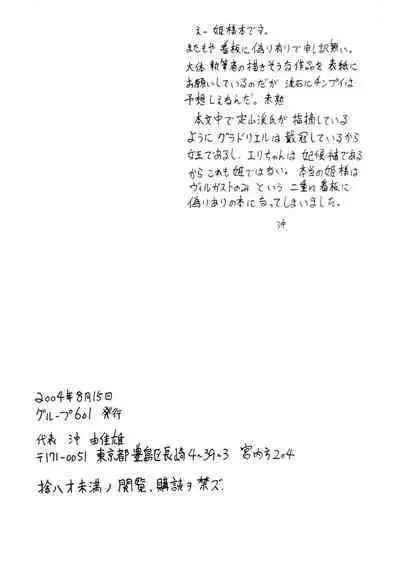 えー 姫様本です。
またもや 看板に偽り有りで申し訳無い。
大体 執筆者の描きそうな作品を 表紙に
お願いしているのだが 流石にチンプイは
予想しえなんだ。未熟
本文中で定山渓氏が 指摘している
ようにグラドリエルは 戴冠しているから
女王であるし、エリちゃんは 妃候補である
からこれも姫ではない。本当の姫様は
ヴィルガストのみ という 二重に看板に
偽りありの本になってしまいました。
沖
2004年8月15日
グループ601 発行
代表 沖 由佳雄
〒171-0051 東京都豊島区長崎4-39-3 宮内方204
拾八才未満ノ閲覧、購読ヲ禁ズ